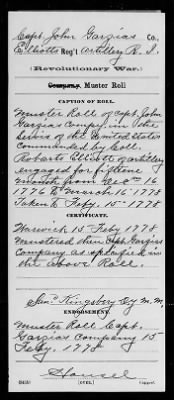 Capt. John Garzias Co.,
Elliotts Reg't Artillery R. I.
(Revolutionary War.)
Company Muster Roll
CAPTION OF ROLL.
Muster Roll of Capt. John
Garzias Compy. in the
Servis of the United States
Commanded by Coll.
Robarts Elliott of artillery
engaged for fifteene
month from Dec 16
1776 to March 15 1778
Taken to Feby. 15 - 1778
CERTIFICATE.
Warwick 15 Feby 1778
Mustered then Capt Garzias
Company as specifyed in
the above Roll.
Kingsbery Cy M. M.
ENDORSEMENT.
Muster Roll Capt.
Garzias Company 15
Feby. 1778
(OVER.)
Copyist.